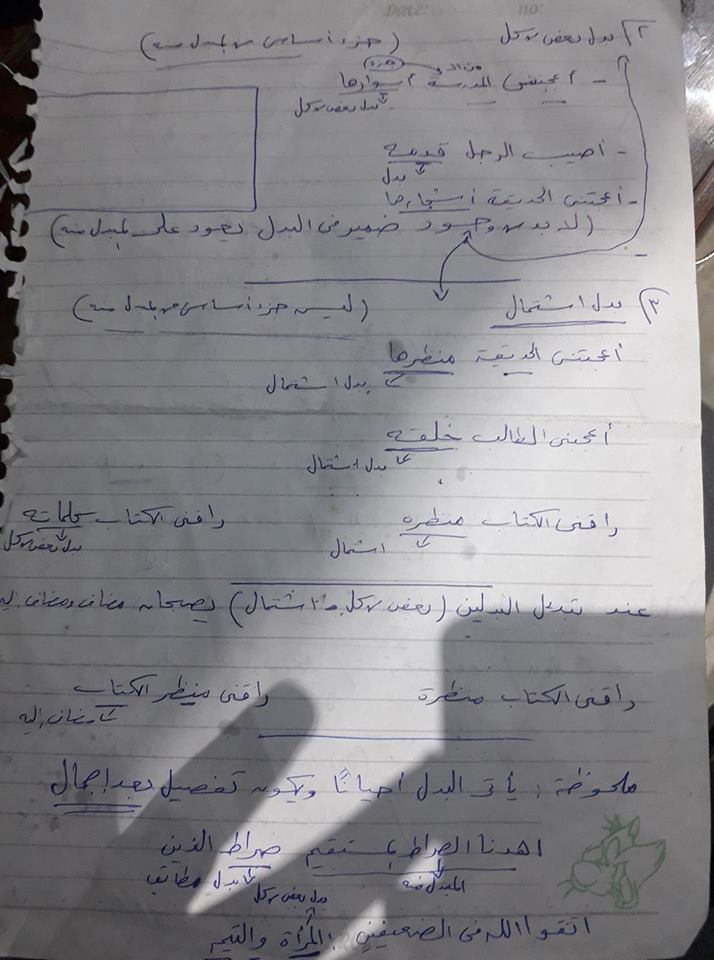 Date: no:
٢) بدل بعض من كل (جزء أساسي من المبدل منه)
جزء من الـ
- أعجبتني المدرسة أسوارها
بدل بعض من كل
- أصيب الرجل قدمه
بدل
- أعجبتني الحديقة أشجارها
(لا بد من وجود ضمير في البدل يعود على المبدل منه)
٣) بدل اشتمال (ليس جزء أساسي من المبدل منه)
أعجبتني الحديقة منظرها
بدل اشتمال
أعجبني الطالب خلقه
بدل اشتمال
راقني الكتاب منظره راقني الكتاب كلماته
اشتمال بدل بعض من كل
عند تبديل البدلين (بعض من كل و اشتمال) يصبحان مضاف ومضاف إليه
راقني الكتاب منظرة راقني منظر الكتاب
مضاف إليه
ملحوظة : يأتي البدل أحيانًا ويكون تفصيل بعد إجمال
اهدنا الصراط المستقيم صراط الذين
المبدل منه بدل مطابق
بدل بعض من كل
اتقوا الله في الضعيفين المرأة واليتيم